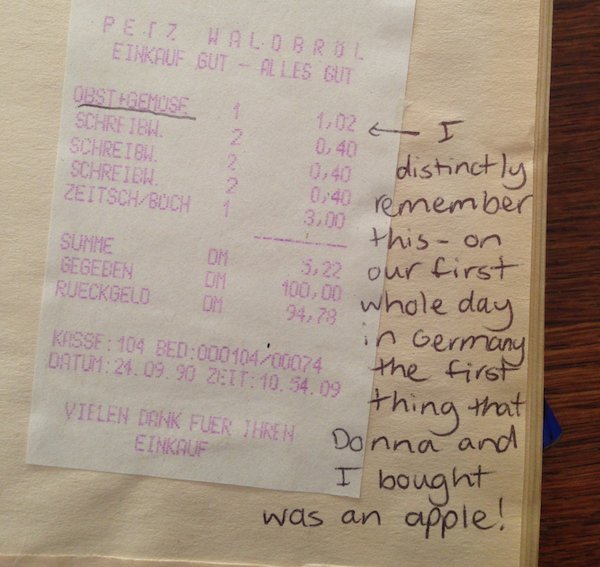 PETZ WALDBRÖL
EINKAUF GUT - ALLES GUT
OBST+GEMÜSE 1 1,02
SCHREIBW. 2 0,40
SCHREIBW. 2 0,40
SCHREIBW. 2 0,40
ZEITSCH/BÜCH 1 3,00
SUMME DM 5,22
GEGEBEN DM 100,00
RUECKGELD DM 94,78
KASSE:104 BED:000104/00074
DATUM:24.09.90 ZEIT:10.54.09
VIELEN DANK FUER IHREN
EINKAUF
← I
distinctly
remember
this - on
our first
whole day
in Germany
the first
thing that
Donna and
I bought
was an apple!